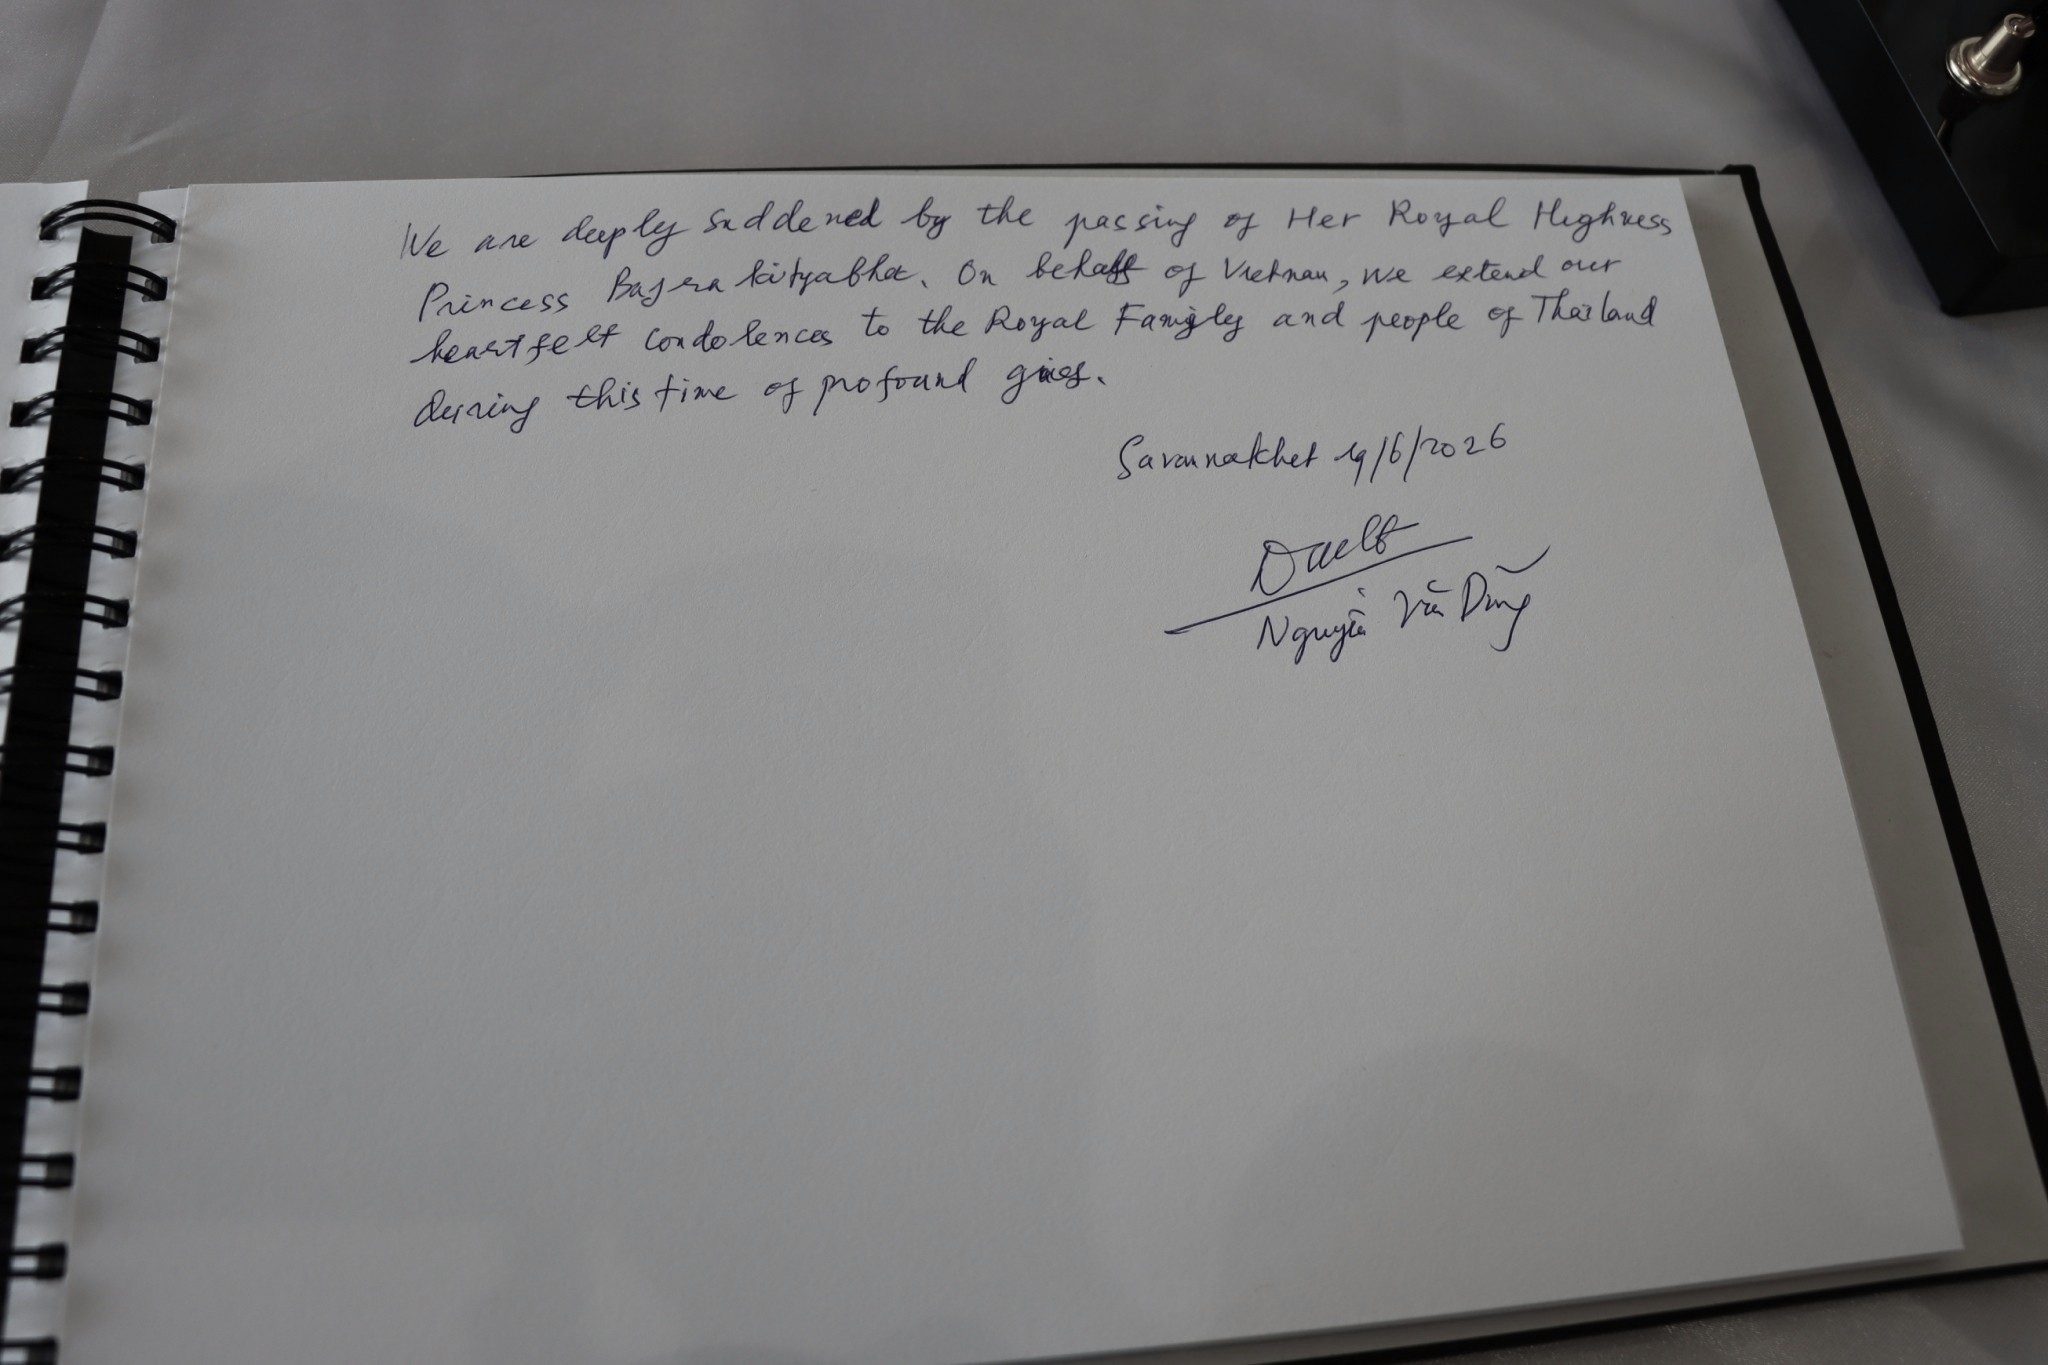 We are deeply saddened by the passing of Her Royal Highness
Princess Bajrakitiyabha. On behalf of Vietnam, we extend our
heartfelt condolences to the Royal Family and people of Thailand
during this time of profound grief.
Savannakhet 19/6/2026
Nguyễn Văn Dũng